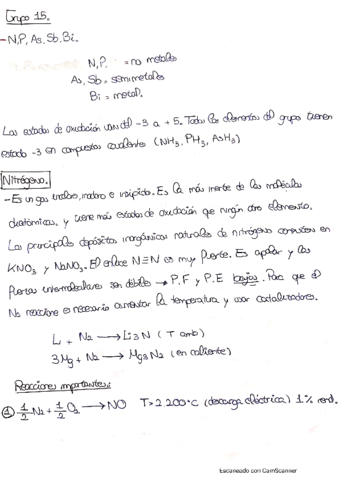 Grupo 15.
- N, P, As, Sb, Bi.
N, P. = no metales
As, Sb = semimetales
Bi = metal.
Los estados de oxidación van del -3 a +5. Todos los elementos del grupo tienen
estado -3 en compuestos covalentes (NH3, PH3, AsH3)
Nitrógeno.
- Es un gas incoloro, inodoro e insípido. Es la más inerte de las moléculas
diatómicas, y tiene más estados de oxidación que ningún otro elemento.
Los principales depósitos inorgánicos naturales de nitrógeno consisten en
KNO3 y NaNO3. El enlace N≡N es muy fuerte. Es apolar y las
fuerzas intermoleculares son débiles → P.F y P.E bajos. Para que el
N2 reaccione es necesario aumentar la temperatura y usar catalizadores.
Li + N2 → Li3N (T amb)
3Mg + N2 → Mg3N2 (en caliente)
Reacciones importantes:
① 1/2 N2 + 1/2 O2 → NO T>2200ºC (descarga eléctrica) 1% rend.
Escaneado con CamScanner